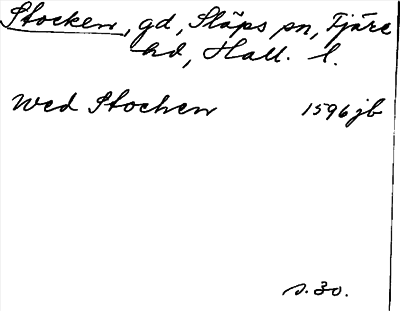 Stocken, gd, Släps sn, Fjäre
hd, Hall. l.
wed Stochen 1596 jb
s. 30.